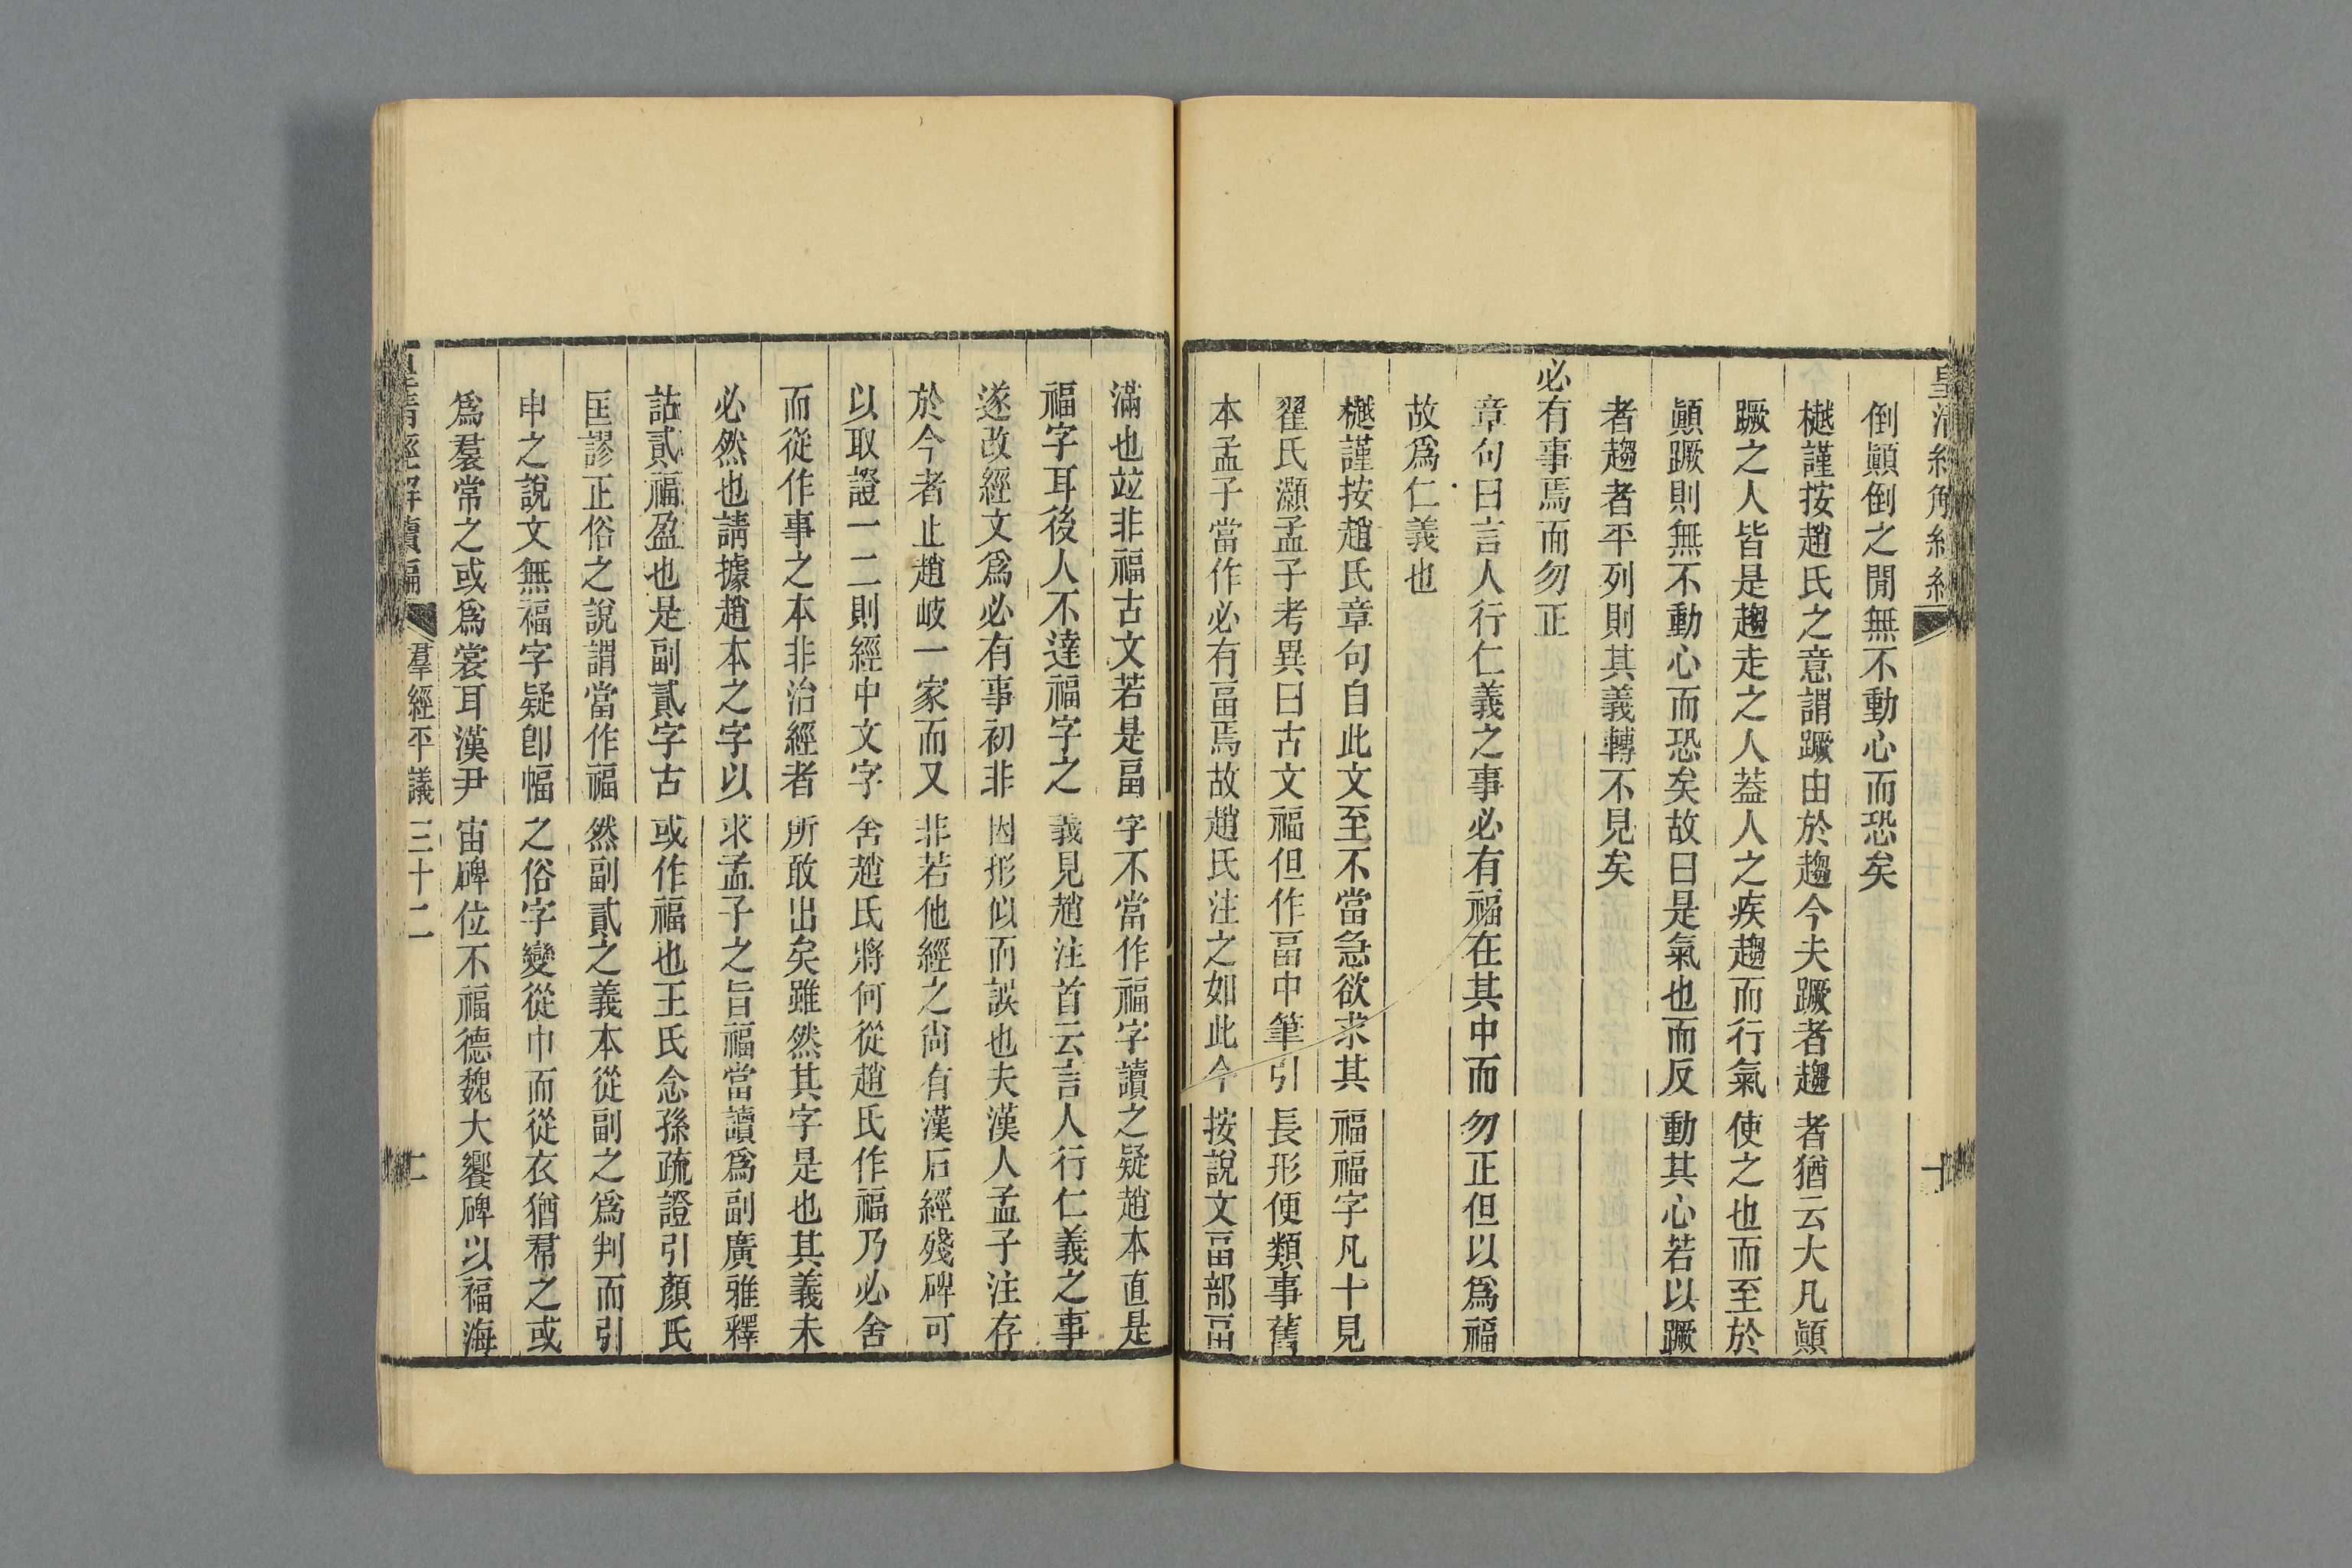 倒顚倒之閒無不動心而恐矣
樾謹按趙氏之意謂蹶由於趨今夫蹶者趨者猶云大凡顚
蹶之人皆是趨走之人葢人之疾趨而行氣使之也而至於
顚蹶則無不動心而恐矣故曰是氣也而反動其心若以蹶
者趨者平列則其義轉不見矣
必有事焉而勿正
章句曰言人行仁義之事必有福在其中而勿正但以爲福
故爲仁義也
樾謹按趙氏章句自此文至不當急欲求其福福字凡十見
翟氏灝孟子考異曰古文福但作畐中筆引長形便類事舊
本孟子當作必有畐焉故趙氏注之如此今按說文畐部畐
滿也竝非福古文若是畐字不當作福字讀之疑趙本直是
福字耳後人不達福字之義見趙注首云言人行仁義之事
遂改經文爲必有事初非因形似而誤也夫漢人孟子注存
於今者止趙岐一家而又非若他經之尙有漢石經殘碑可
以取證一二則經中文字舍趙氏將何從趙氏作福乃必舍
而從作事之本非治經者所敢出矣雖然其字是也其義未
必然也請據趙本之字以求孟子之旨福當讀爲副廣雅釋
詁貳福盈也是副貳字古或作福也王氏念孫疏證引顏氏
匡謬正俗之說謂當作福然副貳之義本從副之爲判而引
申之說文無福字疑卽幅之俗字變從巾而從衣猶帬之或
爲裠常之或爲裳耳漢尹宙碑位不福德魏大饗碑以福海
皇清經解續編
羣經平議三十二
二